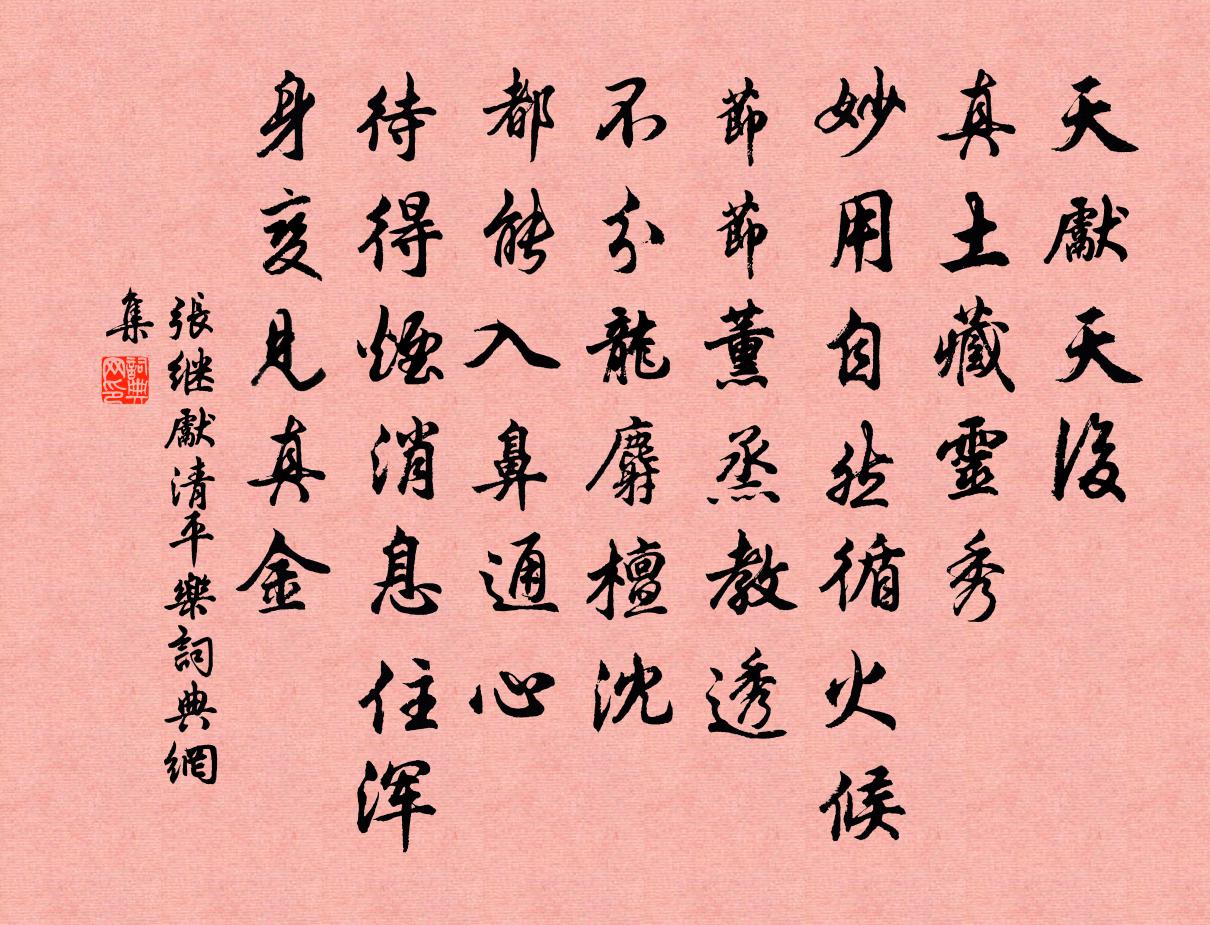 天獻天後
真土藏靈秀
妙用自然循火候
節節薰烝教透
不分龍麝檀沈
都能入鼻通心
待得煙消息住浑
身变見真金
張继獻清平樂詞典網
集
詞典
网印